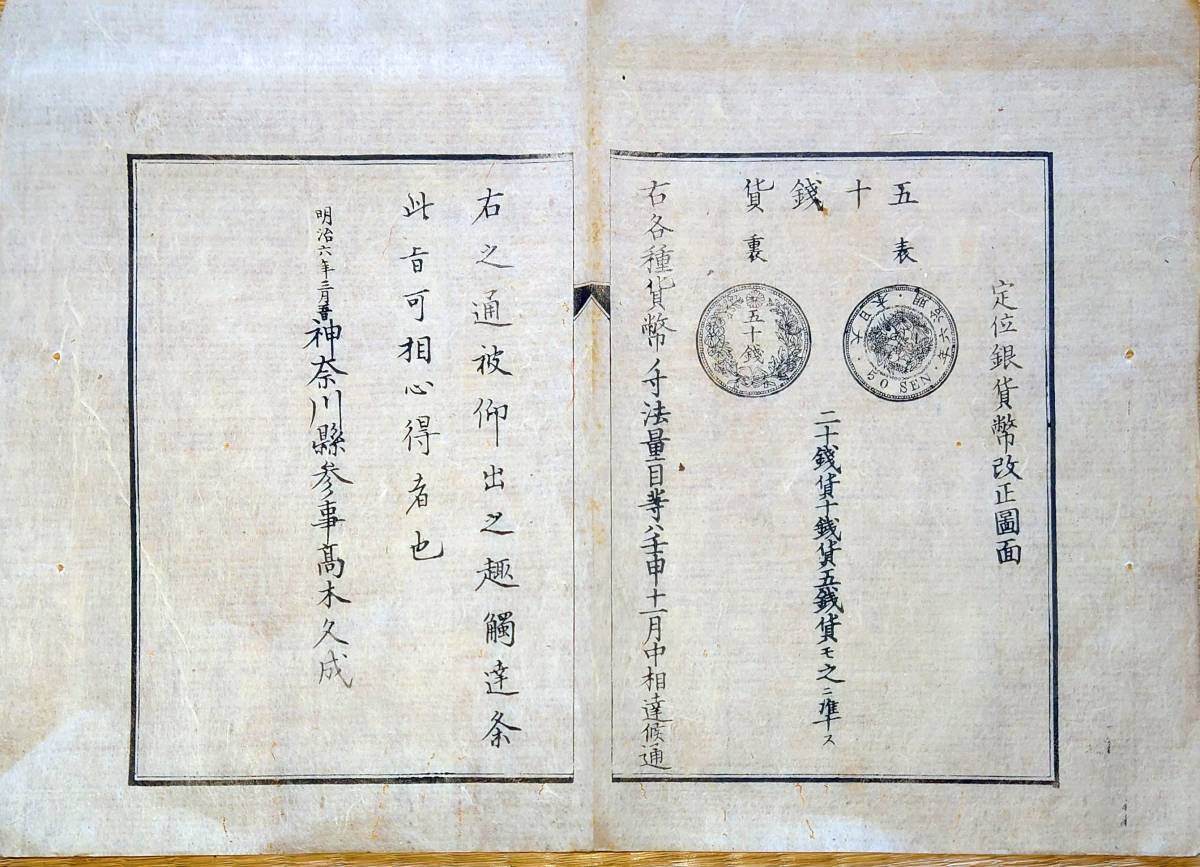 定位銀貨幣改正圖面
五十錢貨
表
大日本・明治六年・50 SEN・
裏
五十錢
二十錢貨十錢貨五錢貨モ之ニ準ス
右各種貨幣ノ寸法量目等ハ壬申十一月中相達候通
右之通被仰出之趣觸達条
此旨可相心得者也
明治六年三月
神奈川縣参事髙木久成